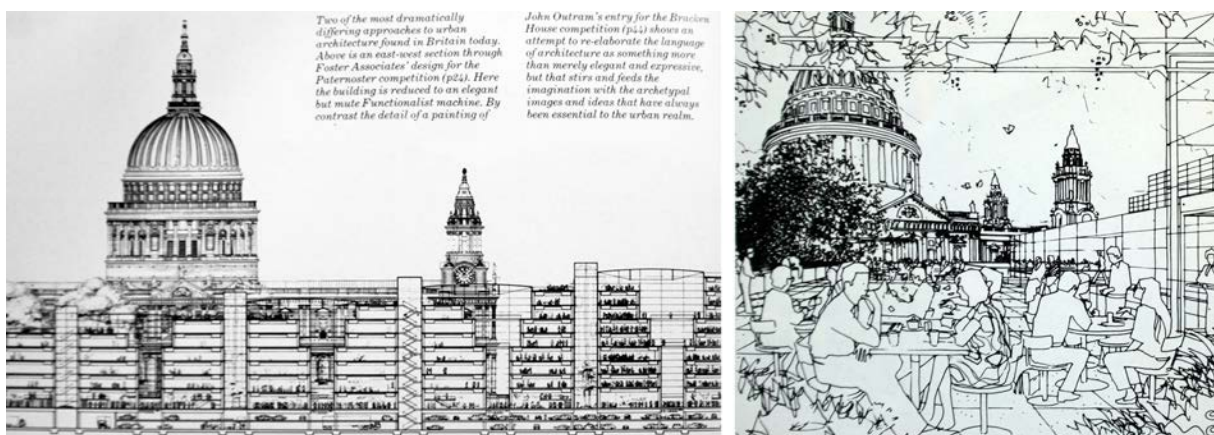 Two of the most dramatically
differing approaches to urban
architecture found in Britain today.
Above is an east-west section through
Foster Associates' design for the
Paternoster competition (p24). Here
the building is reduced to an elegant
but mute Functionalist machine. By
contrast the detail of a painting of
John Outram's entry for the Bracken
House competition (p44) shows an
attempt to re-elaborate the language
of architecture as something more
than merely elegant and expressive,
but that stirs and feeds the
imagination with the archetypal
images and ideas that have always
been essential to the urban realm.